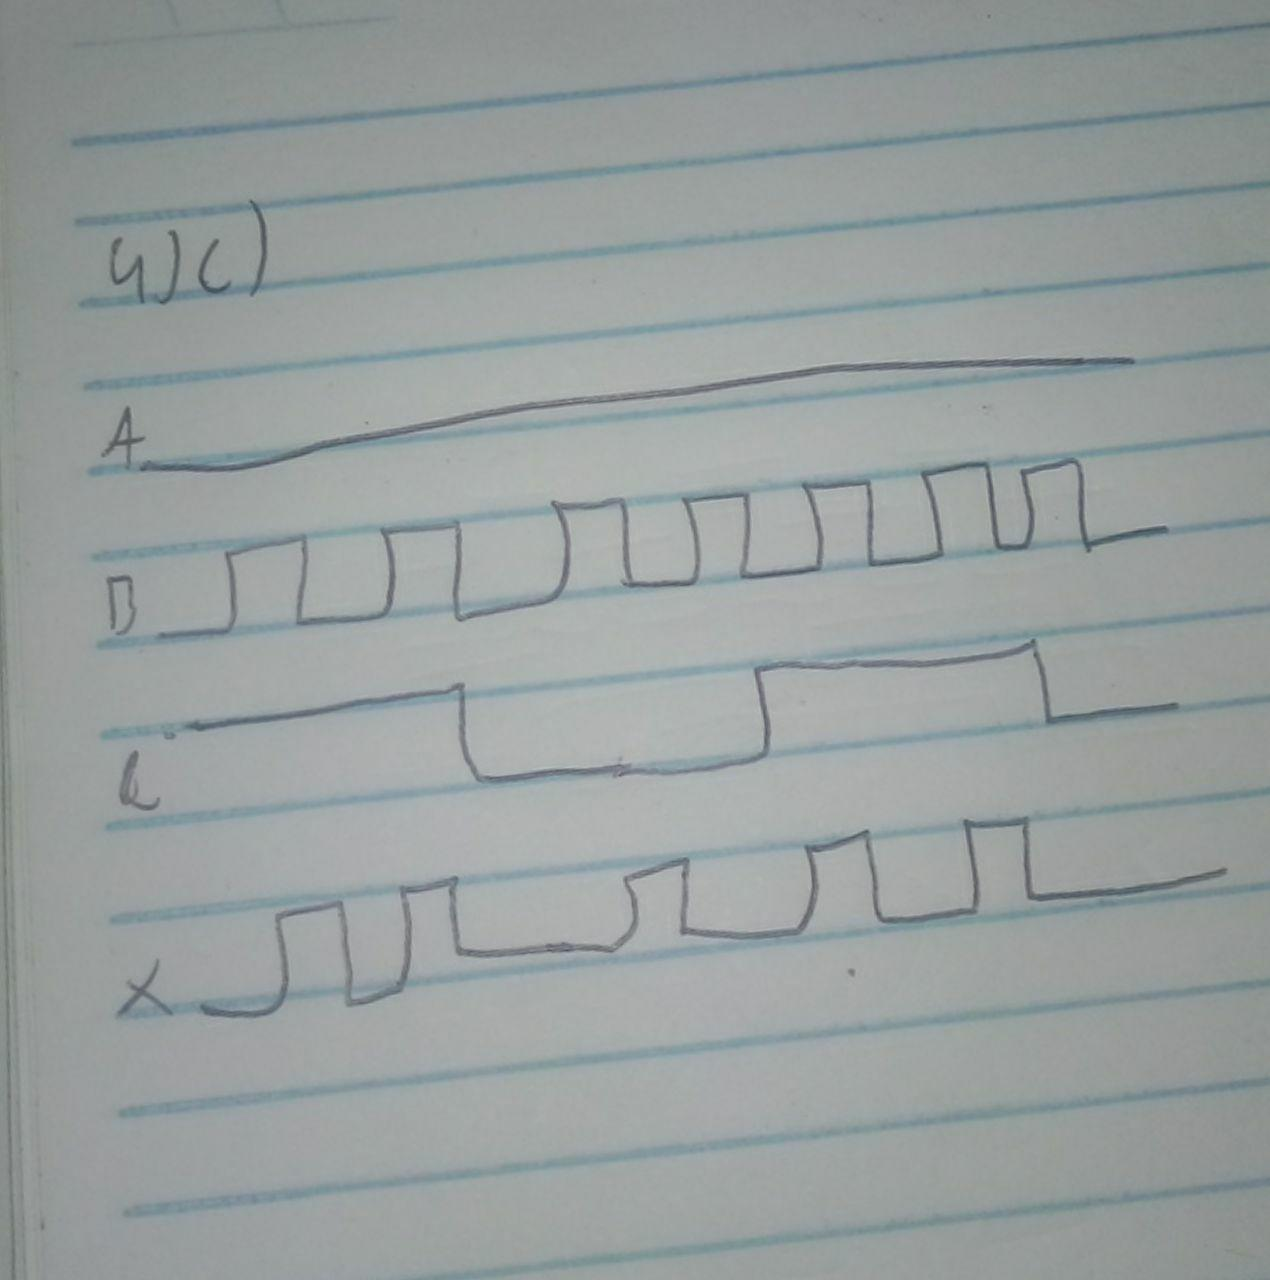 4)c)
A
B
C
X